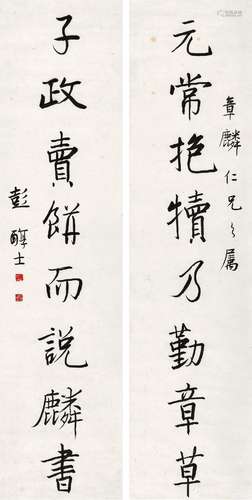 元常抱犢乃勤章草
章麟仁兄之屬
子政賣餅而說麟書
彭醇士